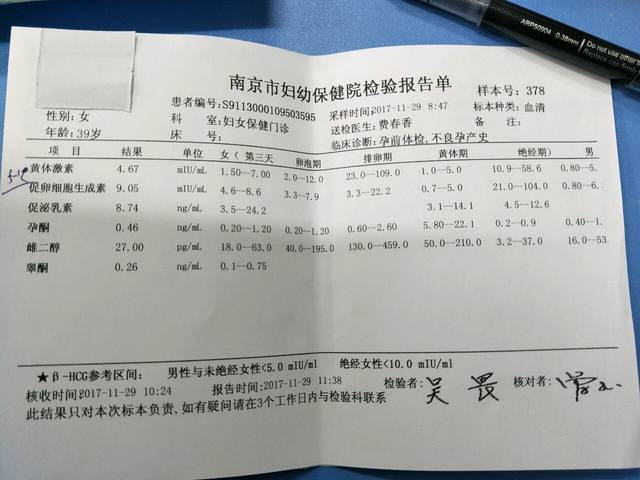 ARP50904 0.38mm
Do not use other
Replace cap firmly
南京市妇幼保健院检验报告单
患者编号:S9113000109503595 采样时间:2017-11-29 8:47 样本号: 378
性别:女 科 室:妇女保健门诊 送检医生:费春香 标本种类:血清
年龄:39岁 床 号: 临床诊断:孕前体检,不良孕产史 备 注:
项 目 结果 单位 女( 第三天 卵泡期 排卵期 黄体期 绝经期) 男
黄体激素 4.67 mIU/mL 1.50--7.00 2.0--12.0 23.0--109.0 1.0--5.0 10.9--58.6 0.80--5.
促卵细胞生成素 9.05 mIU/mL 4.6--8.6 3.3--7.9 3.3--22.2 0.7--5.0 21.0--104.0 0.80--6.
促泌乳素 8.74 ng/mL 3.5--24.2 3.1--14.1 4.5--12.6
孕酮 0.46 ng/mL 0.20--1.20 0.20--1.20 0.60--2.60 5.80--22.1 0.2--0.9 0.40--1.
雌二醇 27.00 pg/mL 18.0--63.0 40.0--195.0 130.0--459.0 50.0--210.0 3.2--37.0 16.0--53
睾酮 0.26 ng/mL 0.1--0.75
★β-HCG参考区间: 男性与未绝经女性<5.0 mIU/ml 绝经女性<10.0 mIU/ml
核收时间:2017-11-29 10:24 报告时间:2017-11-29 11:38 检验者: 吴 畏 核对者:
此结果只对本次标本负责,如有疑问请在3个工作日内与检验科联系